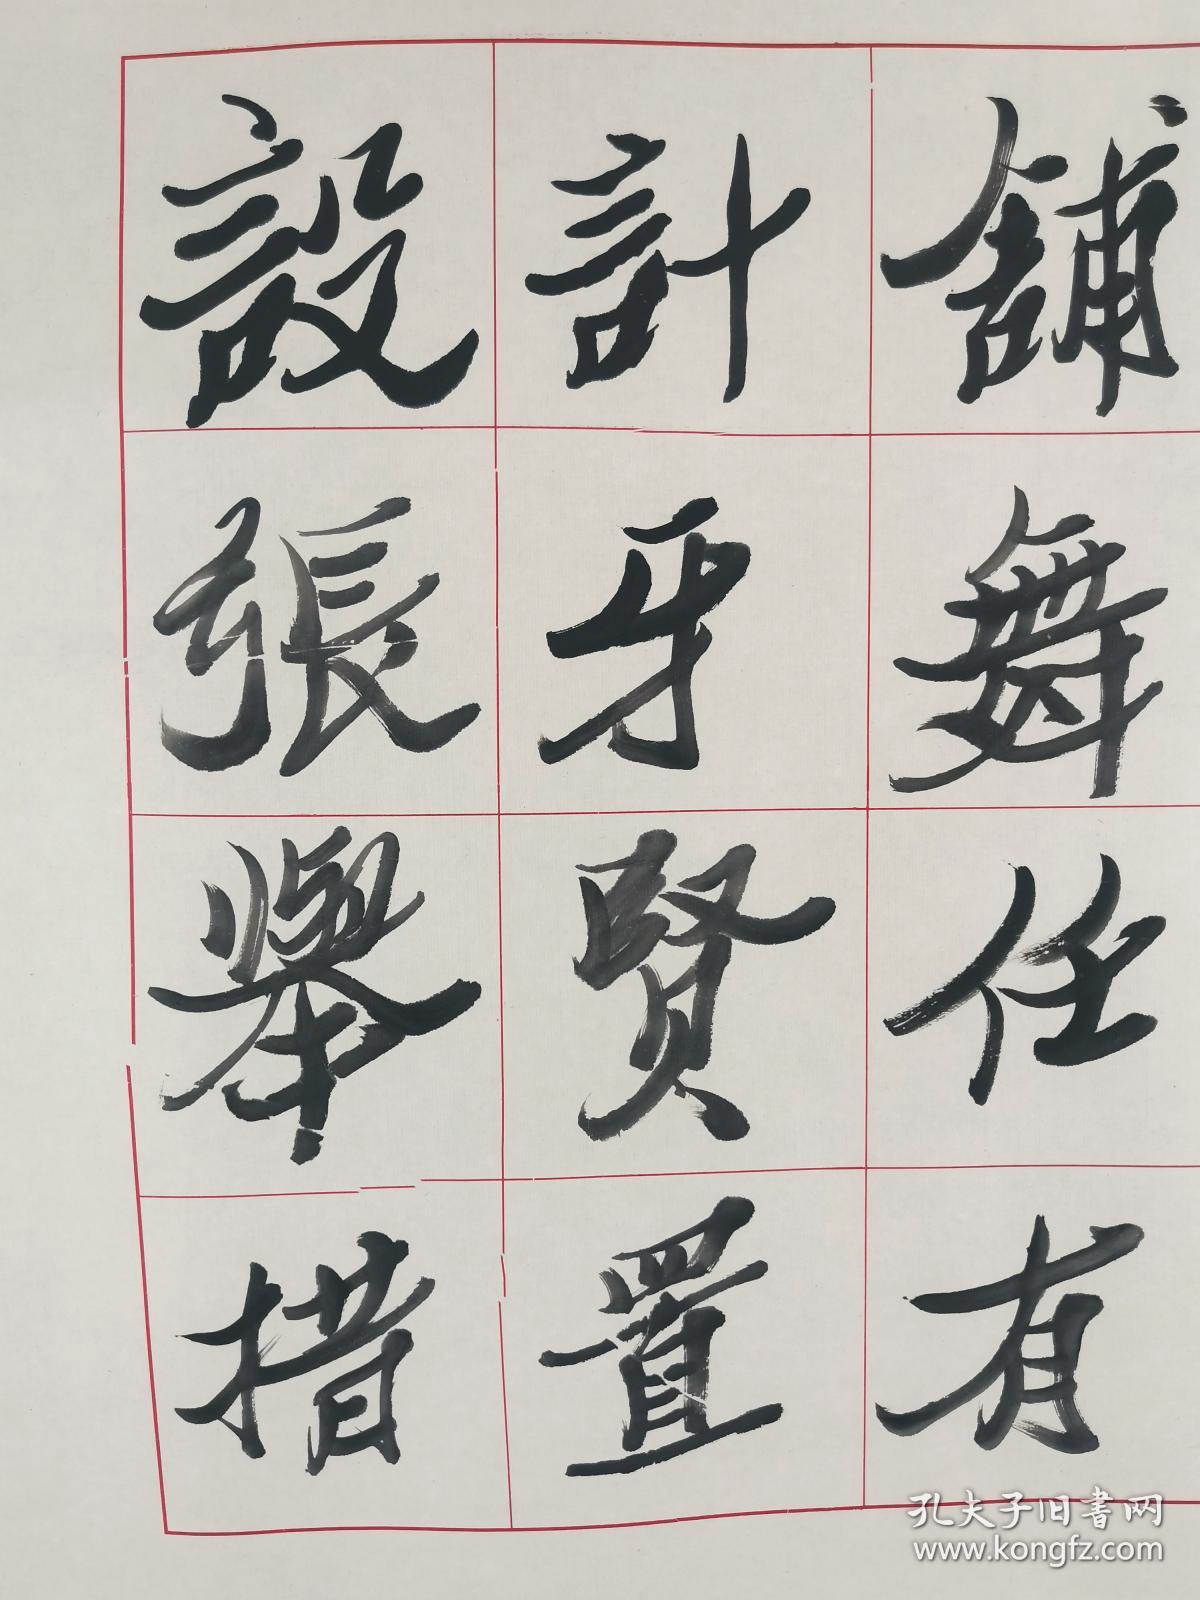 設計舖
張牙舞
舉賢任
措置有
孔夫子旧書网
www.kongfz.com